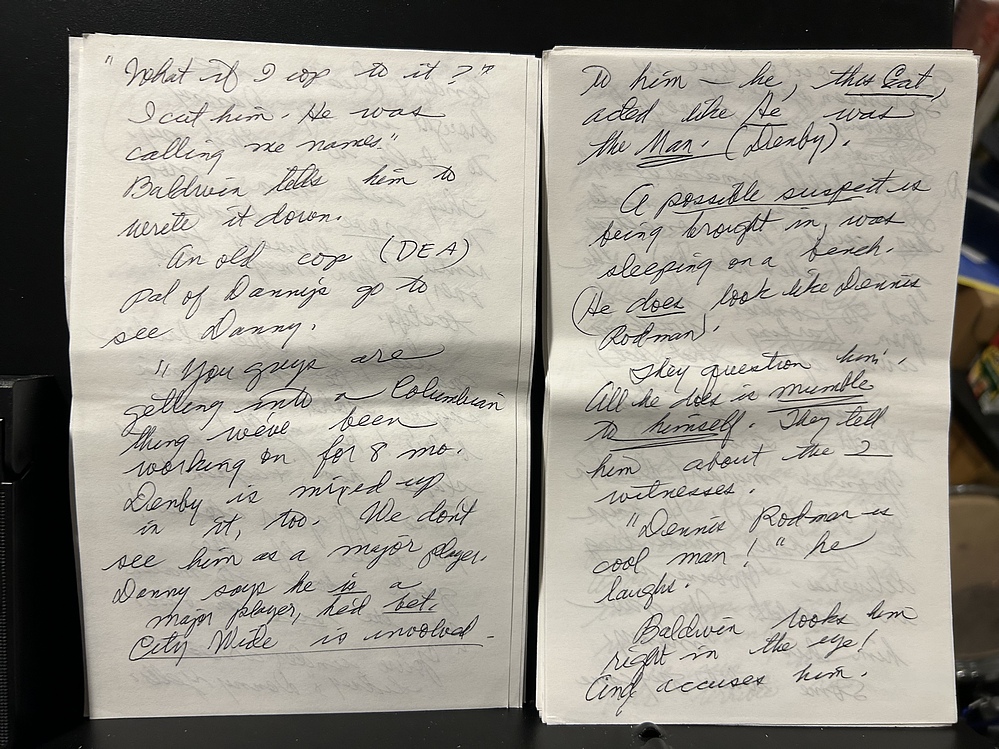 "What if I cop to it?"
I cut him. He was
calling me names."
Baldwin tells him to
write it down.
An old cop (DEA)
pal of Danny's go to
see Danny.
"You guys are
getting into a Columbian
thing weve been
working on for 8 mo.
Denby is mixed up
in it, too. We don't
see him as a major player.
Danny says he is a
major player, he'd bet.
City Wide is involved.
To him – he, this Cat,
acted like He was
the Man. (Denby).
A possible suspect is
being brought in, was
sleeping on a bench.
(He does look like Dennis
Rodman).
They question him.
All he does is mumble
to himself. They tell
him about the 2
witnesses.
"Dennis Rodman is
cool man!" he
laughs.
Baldwin looks him
right in the eye!
And accuses him.